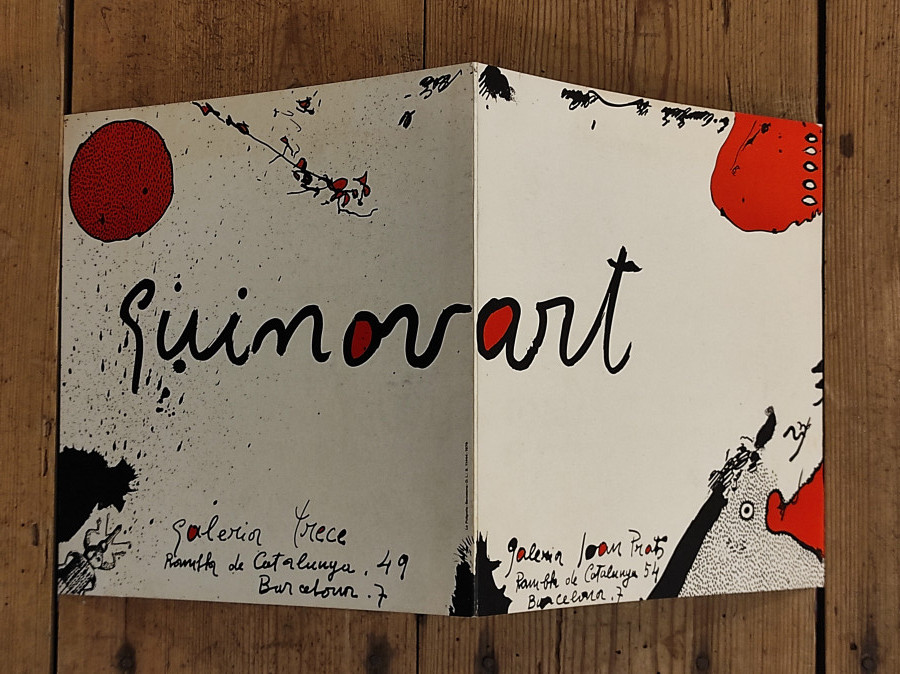 guinovart
galeria Trece
Rambla de Catalunya. 49
Barcelona. 7
galeria Joan Prats
Rambla de Catalunya 54
Barcelona. 7